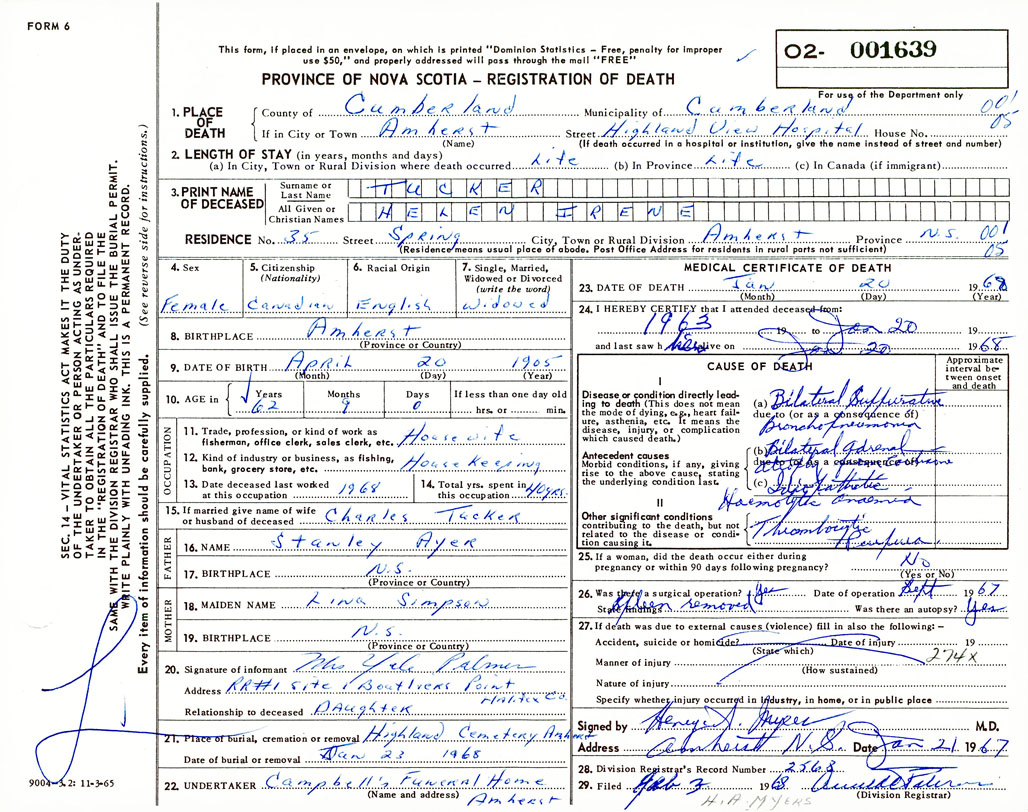 FORM 6
This form, if placed in an envelope, on which is printed "Dominion Statistics – Free, penalty for improper
use $50," and properly addressed will pass through the mail "FREE"
O2- 001639
PROVINCE OF NOVA SCOTIA – REGISTRATION OF DEATH
For use of the Department only
001
05
1. PLACE OF DEATH
County of Cumberland Municipality of Cumberland
If in City or Town Amherst Street Highland View Hospital House No.
(Name) (If death occurred in a hospital or institution, give the name instead of street and number)
2. LENGTH OF STAY (in years, months and days)
(a) In City, Town or Rural Division where death occurred Life (b) In Province Life (c) In Canada (if immigrant)
3. PRINT NAME OF DECEASED
Surname or Last Name TUCKER
All Given or Christian Names HELEN IRENE
RESIDENCE No. 35 Street Spring City, Town or Rural Division Amherst Province N.S. 001
05
(Residence means usual place of abode. Post Office Address for residents in rural parts not sufficient)
SEC. 14 – VITAL STATISTICS ACT MAKES IT THE DUTY
OF THE UNDERTAKER OR PERSON ACTING AS UNDER-
TAKER TO OBTAIN ALL THE PARTICULARS REQUIRED
IN THE "REGISTRATION OF DEATH" AND TO FILE THE
SAME WITH THE DIVISION REGISTRAR WHO SHALL ISSUE THE BURIAL PERMIT.
WRITE PLAINLY WITH UNFADING INK. THIS IS A PERMANENT RECORD.
Every item of information should be carefully supplied. (See reverse side for instructions.)
4. Sex
Female
5. Citizenship
(Nationality)
Canadian
6. Racial Origin
English
7. Single, Married,
Widowed or Divorced
(write the word)
Widowed
8. BIRTHPLACE Amherst
(Province or Country)
9. DATE OF BIRTH April 20 1905
(Month) (Day) (Year)
10. AGE in Years Months Days If less than one day old
62 9 0 hrs. or min.
OCCUPATION
11. Trade, profession, or kind of work as
fisherman, office clerk, sales clerk, etc. Housewife
12. Kind of industry or business, as fishing,
bank, grocery store, etc. House Keeping
13. Date deceased last worked
at this occupation 1968
14. Total yrs. spent in
this occupation 40yrs.
15. If married give name of wife
or husband of deceased Charles Tucker
FATHER
16. NAME Stanley Ayer
17. BIRTHPLACE N.S.
(Province or Country)
MOTHER
18. MAIDEN NAME Lina Simpson
19. BIRTHPLACE N.S.
(Province or Country)
20. Signature of informant Mrs Yale Palmer
Address RR#1 Site 1 Boutliers Point
Halifax Co.
Relationship to deceased Daughter
21. Place of burial, cremation or removal Highland Cemetery Amherst
Date of burial or removal Jan 23 1968
22. UNDERTAKER Campbell's Funeral Home
(Name and address) Amherst
9004–3.2: 11-3-65
MEDICAL CERTIFICATE OF DEATH
23. DATE OF DEATH Jan 20 1968
(Month) (Day) (Year)
24. I HEREBY CERTIFY that I attended deceased from:
1963 19 to Jan 20 19
and last saw her alive on Jan 20 1968
CAUSE OF DEATH
Approximate
interval be-
tween onset
and death
I
Disease or condition directly lead-
ing to death (This does not mean
the mode of dying, e.g., heart fail-
ure, asthenia, etc. It means the
disease, injury, or complication
which caused death.)
(a) Bilateral Suppurative
due to (or as a consequence of)
Bronchopneumonia
Antecedent causes
Morbid conditions, if any, giving
rise to the above cause, stating
the underlying condition last.
(b) Bilateral Adrenal
due to (or as a consequence of)
(c) Idiopathic
Haemolytic Anaemia
II
Other significant conditions
contributing to the death, but not
related to the disease or condi-
tion causing it.
Thrombocytic
Purpura
25. If a woman, did the death occur either during
pregnancy or within 90 days following pregnancy? No
(Yes or No)
26. Was there a surgical operation? Yes Date of operation Sept 1967
State findings Spleen removed Was there an autopsy? Yes
27. If death was due to external causes (violence) fill in also the following:–
Accident, suicide or homicide? Date of injury 19
(State which) 274X
Manner of injury
(How sustained)
Nature of injury
Specify whether injury occurred in industry, in home, or in public place
Signed by M.D.
Address Amherst N.S. Date Jan 21 1967
28. Division Registrar's Record Number 2568
29. Filed Feb 2 1968
(Division Registrar)
H.A. MYERS